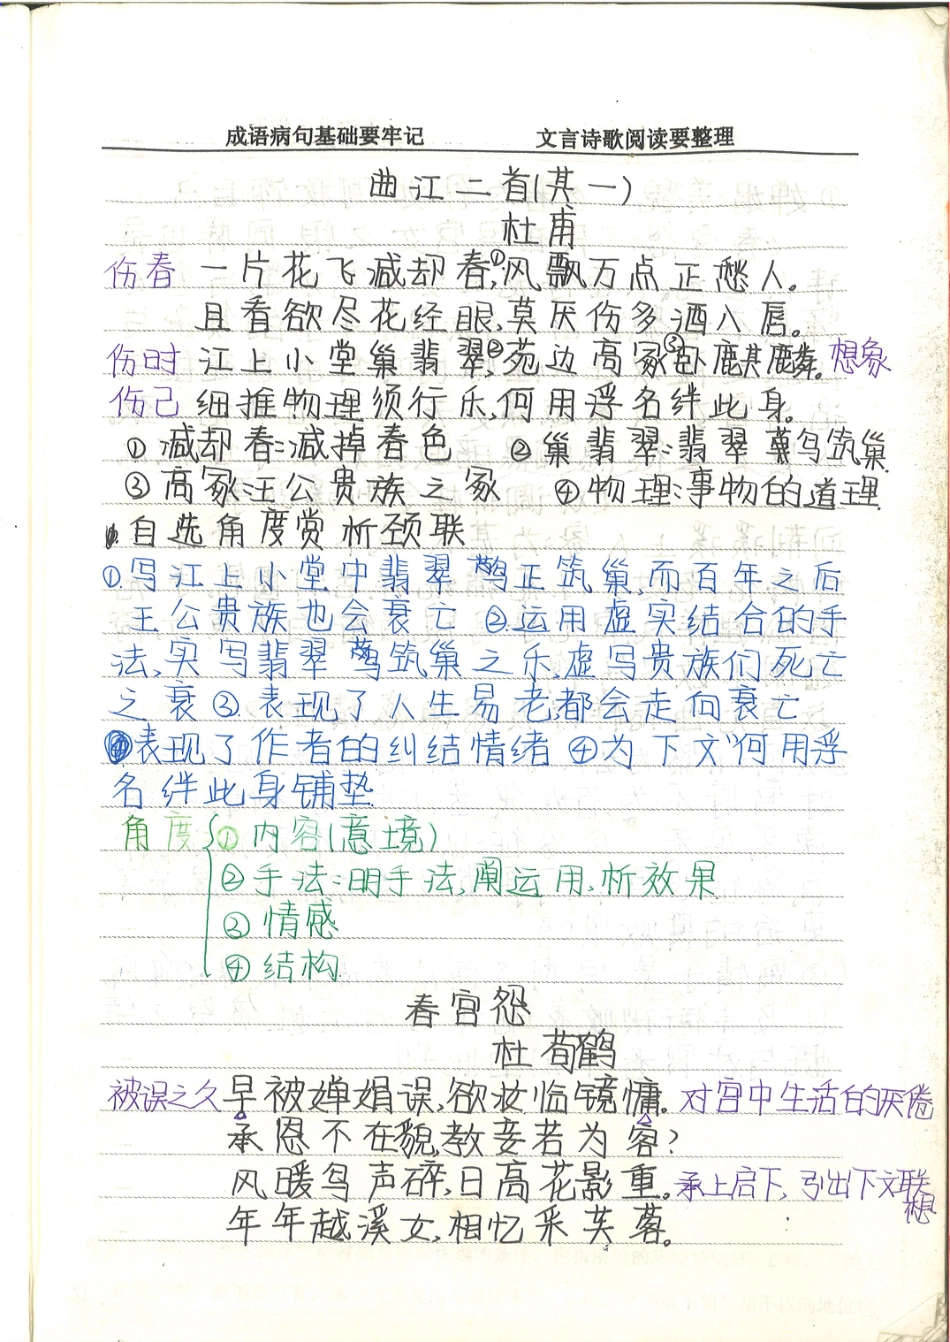 成语病句基础要牢记 文言诗歌阅读要整理
曲江二首(其一)
杜甫
伤春 一片花飞减却春①,风飘万点正愁人。
且看欲尽花经眼,莫厌伤多酒入唇。
伤时 江上小堂巢翡翠②,苑边高冢③卧麒麟。想象
伤己 细推物理须行乐,何用浮名绊此身。
①减却春:减掉春色 ②巢翡翠:翡翠鸟筑巢
③高冢:王公贵族之冢 ④物理:事物的道理
1.自选角度赏析颈联
①.写江上小堂中翡翠鸟正筑巢,而百年之后
王公贵族也会衰亡 ②.运用虚实结合的手
法,实写翡翠鸟筑巢之乐,虚写贵族们死亡
之衰③.表现了人生易老,都会走向衰亡
表现了作者的纠结情绪 ④为下文"何用浮
名绊此身铺垫
角度 ①内容(意境)
②手法:明手法,阐运用,析效果
③情感
④结构
春宫怨
杜荀鹤
被误之久 早被婵娟误,欲妆临镜慵。对宫中生活的厌倦
承恩不在貌,教妾若为容?
风暖鸟声碎,日高花影重。承上启下,引出下文联
想
年年越溪女,相忆采芙蓉。